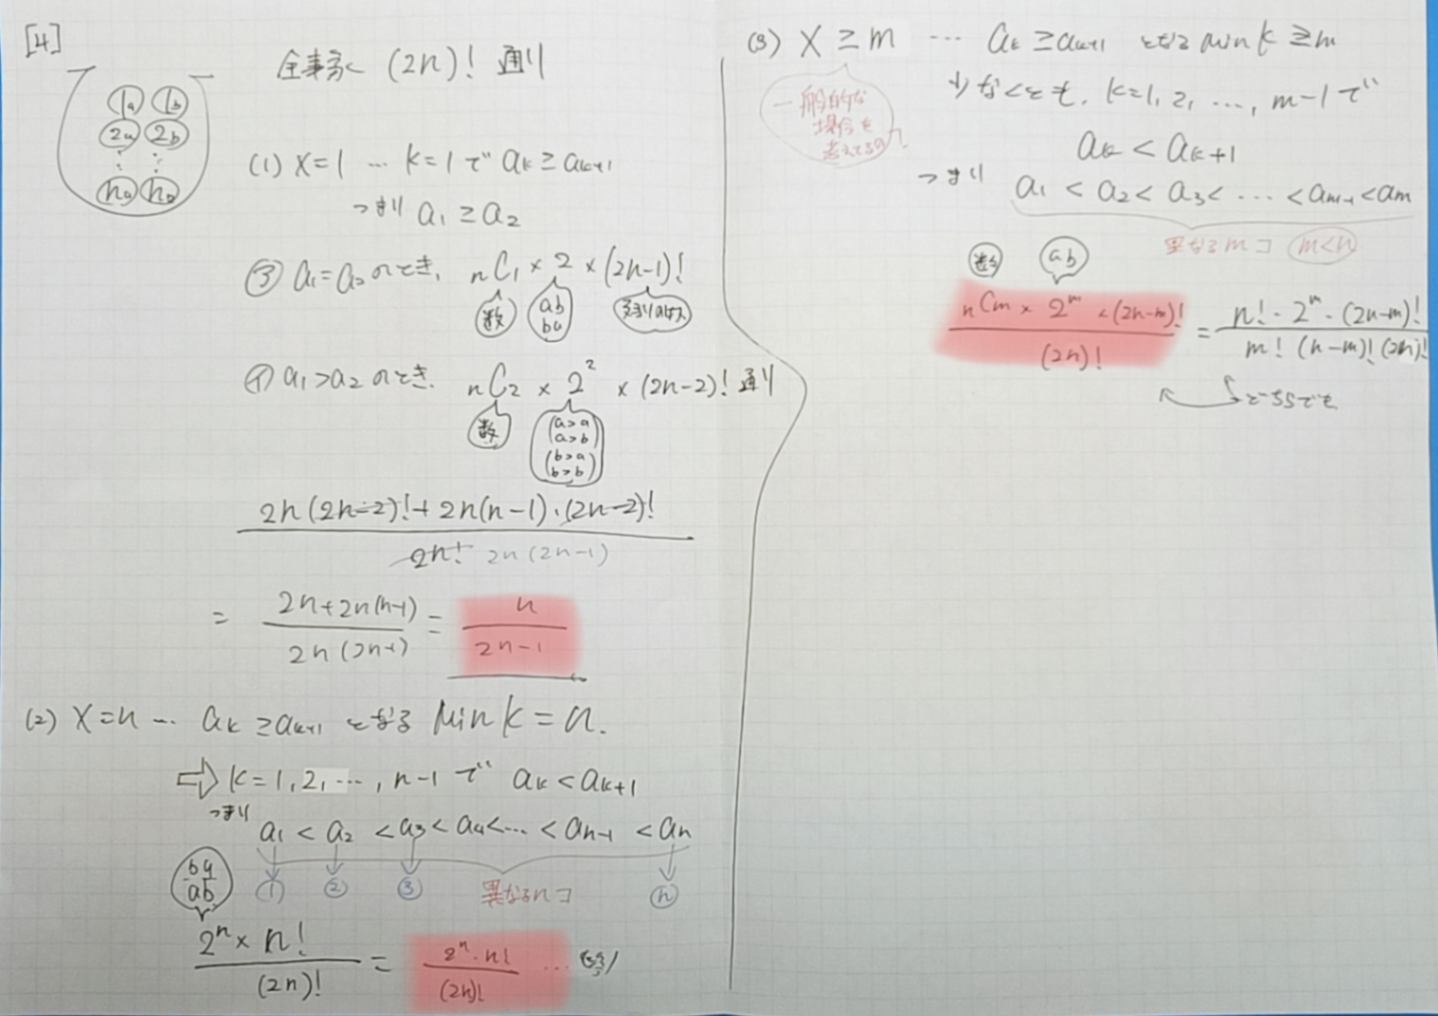 [4]
全事象 (2n)! 通り
1a 1b
2a 2b
⋮ ⋮
na nb
(1) X=1 … k=1で ak≥ak+1
つまり a1≥a2
㋐ a1=a2のとき, nC1×2×(2n-1)!
数 ab ba 残りの
㋑ a1>a2のとき. nC2 × 2² ×(2n-2)!通り
数
a>a
a>b
b>a
b>b
2n(2n-2)!+2n(n-1)・(2n-2)!
2n! 2n(2n-1)
= 2n+2n(n-1) / 2n(2n-1) = n / 2n-1
(2) X=n … ak≥ak+1 となる Min k=n.
⇨ k=1,2,…,n-1で ak<ak+1
つまり
a1<a2<a3<a4<…<an-1<an
ba
ab
① ② ③ 異なるnコ ⓝ
2ⁿ×n! / (2n)! = 2ⁿ・n! / (2n)! …
(3) X≥m … ak≥ak+1 となる min k≥m
一般的な
場合を
考えてるの
少なくとも, k=1,2,…,m-1で
ak<ak+1
つまり a1<a2<a3<…<am-1<am
異なるmコ m<n
数 ab
nCm×2ᵐ×(2n-m)! / (2n)! = n!・2ᵐ・(2n-m)! / m!(n-m)!(2n)!
どちらでも